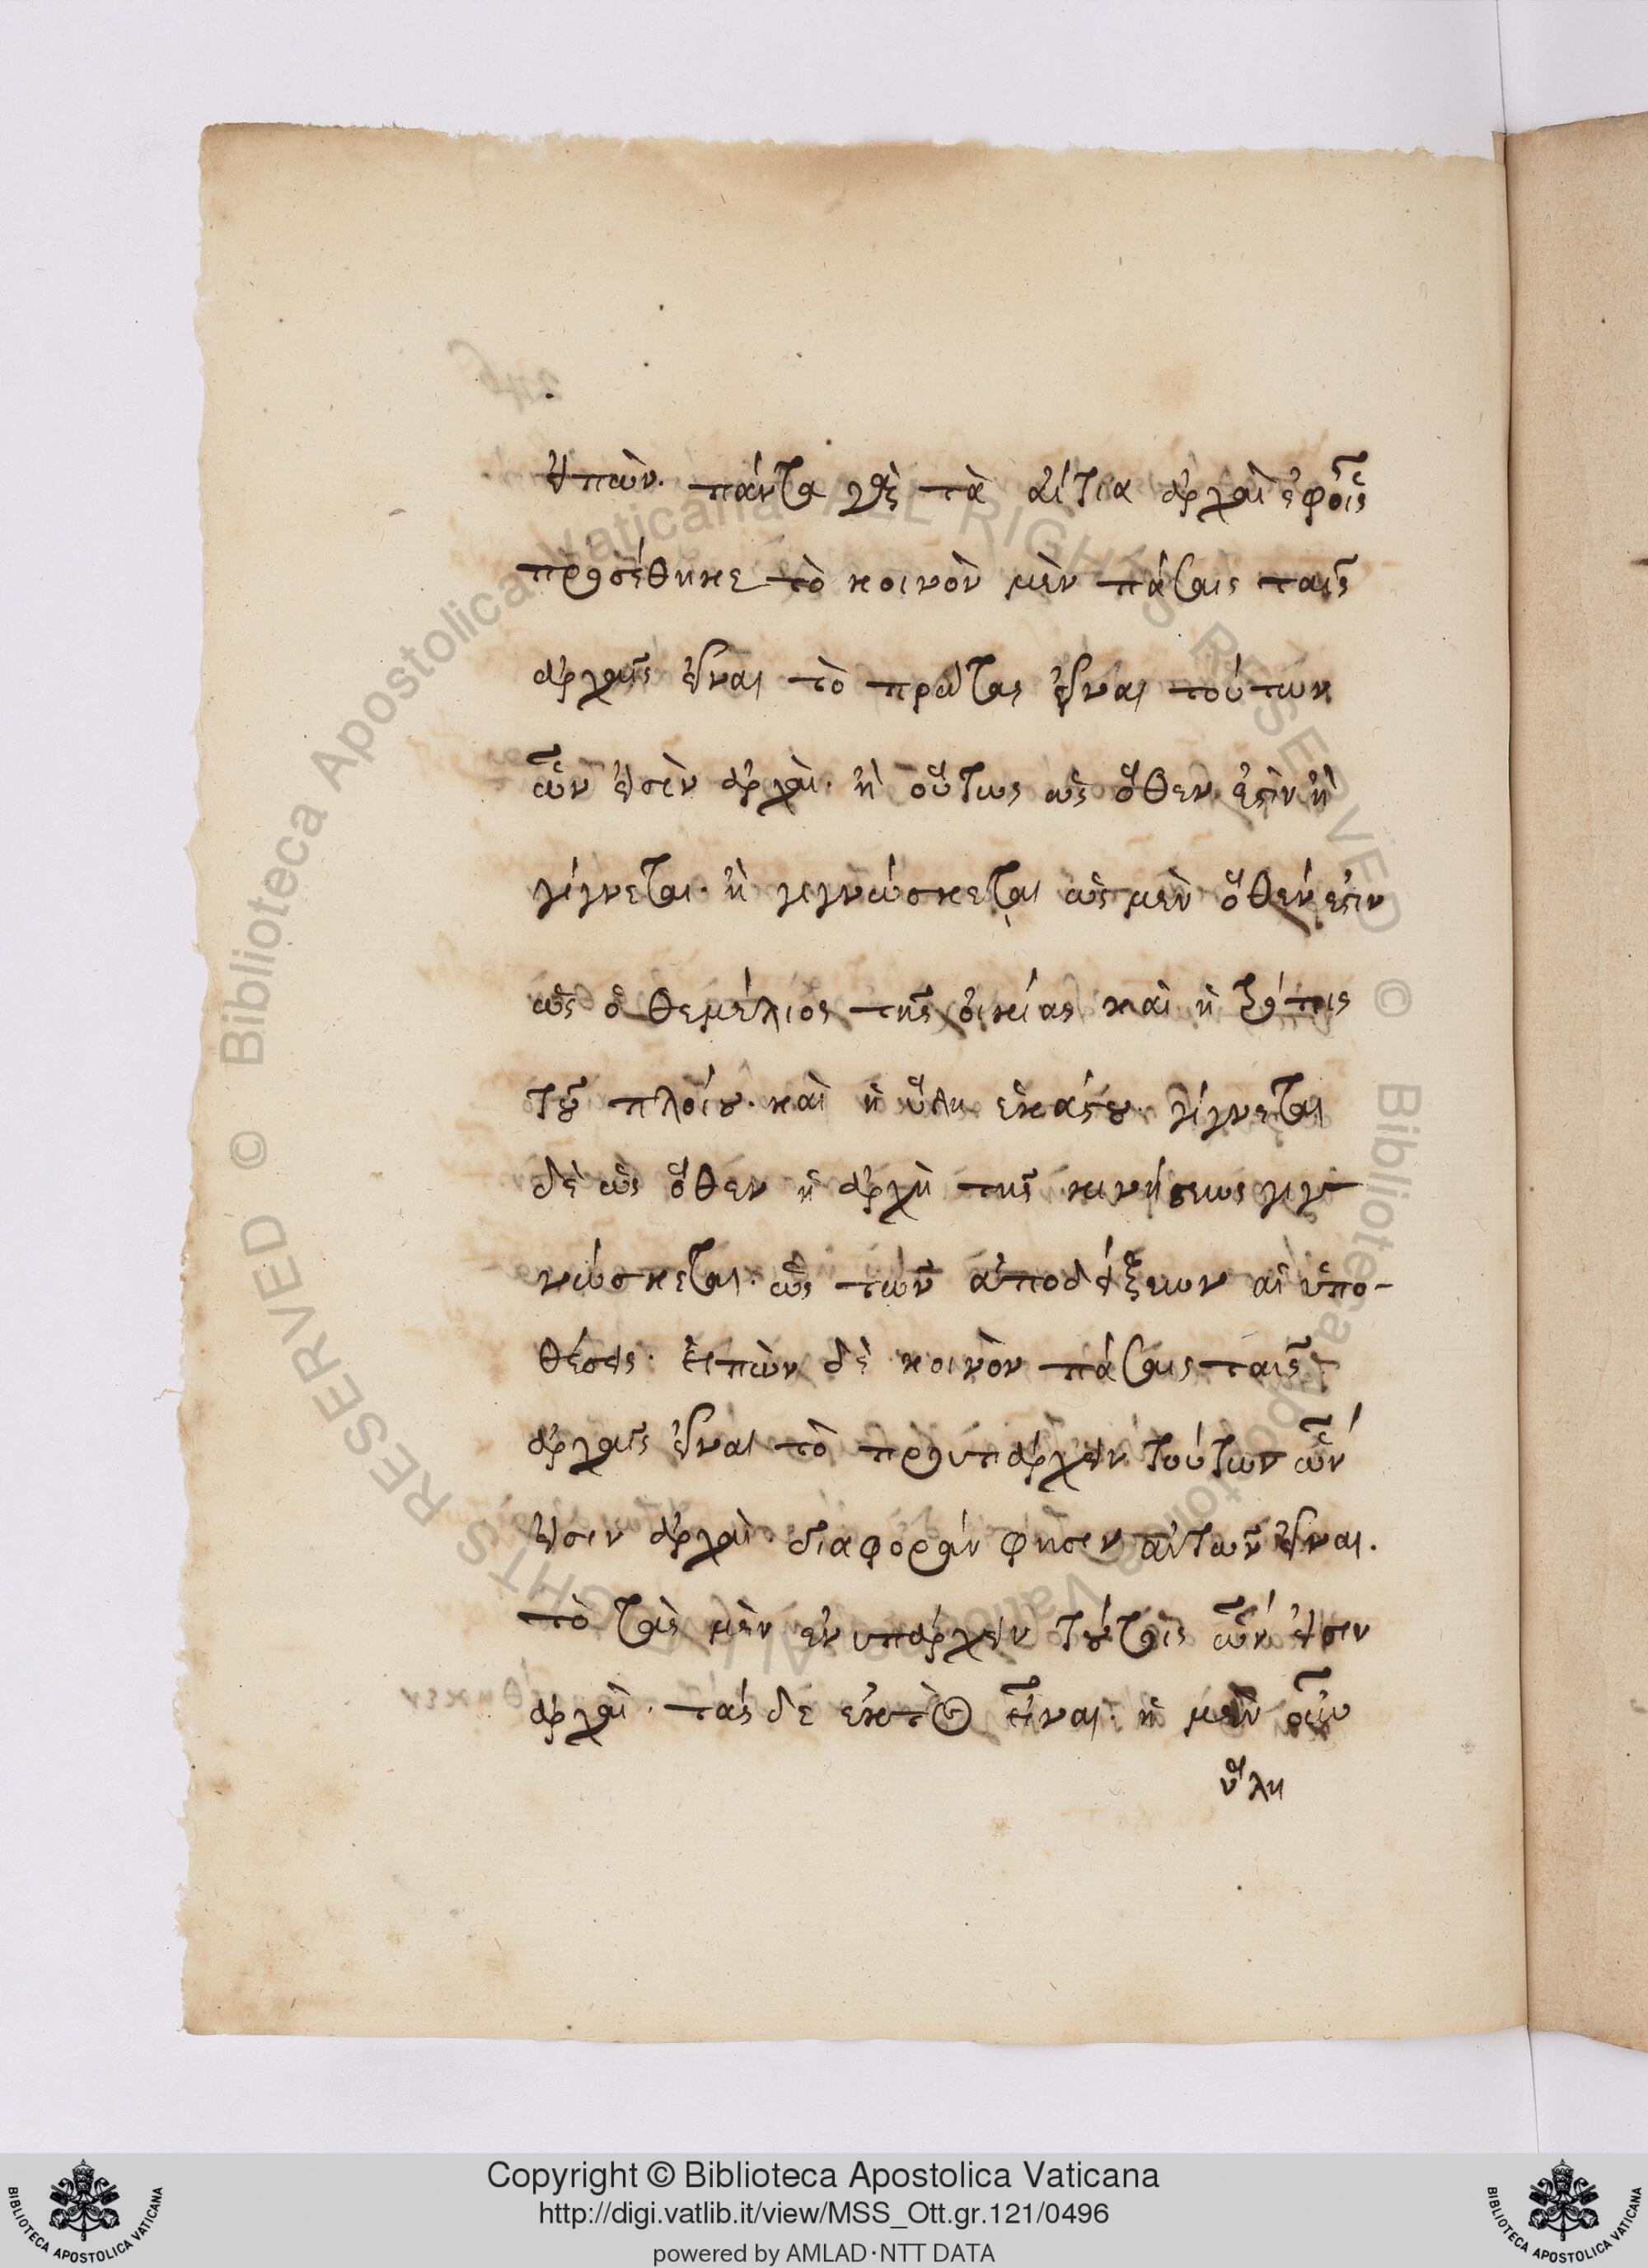 εἰπὼν. πάντα γὰρ τὰ αἴτια ἀρχαὶ ἐφοῖς
προσέθηκε τὸ κοινὸν μὲν πάσαις ταῖς
ἀρχαῖς εἶναι τὸ πρώτας εἶναι τούτων
ὧν εἰσὶν ἀρχαὶ. ἢ οὕτως ὡς ὅθεν ἐστὶν ἢ
γίγνεται. ἢ γιγνώσκεται ὡς μὲν ὅθεν ἐστιν
ὡς ὁ θεμέλιος τῆς οἰκίας καὶ ἡ τρόπις
τοῦ πλοίου. καὶ ἡ ὕλη ἑκάστου. γίγνεται
δὲ ὡς ὅθεν ἡ ἀρχὴ τῆς κινήσεως γιγ-
νώσκεται. ὡς τῶν ἀποδείξεων αἱ ὑπο-
θέσεις. εἰπὼν δὲ κοινὸν πάσαις ταῖς
ἀρχαῖς εἶναι τὸ προυπάρχειν τούτων ὧν
εἰσιν ἀρχαὶ. διαφοράν φησιν αὐτῶν εἶναι.
τὸ τὰς μὲν ἐνυπάρχειν τούτοις ὧν εἰσιν
ἀρχαὶ. τάς δε ἐκτὸς εἶναι. ἡ μὲν οὖν
ὕλη
Copyright © Biblioteca Apostolica Vaticana
http://digi.vatlib.it/view/MSS_Ott.gr.121/0496
powered by AMLAD·NTT DATA
BIBLIOTECA APOSTOLICA VATICANA
BIBLIOTECA APOSTOLICA VATICANA
© Biblioteca Apostolica Vaticana ALL RIGHTS RESERVED © Biblioteca Apostolica Vaticana ALL RIGHTS RESERVED